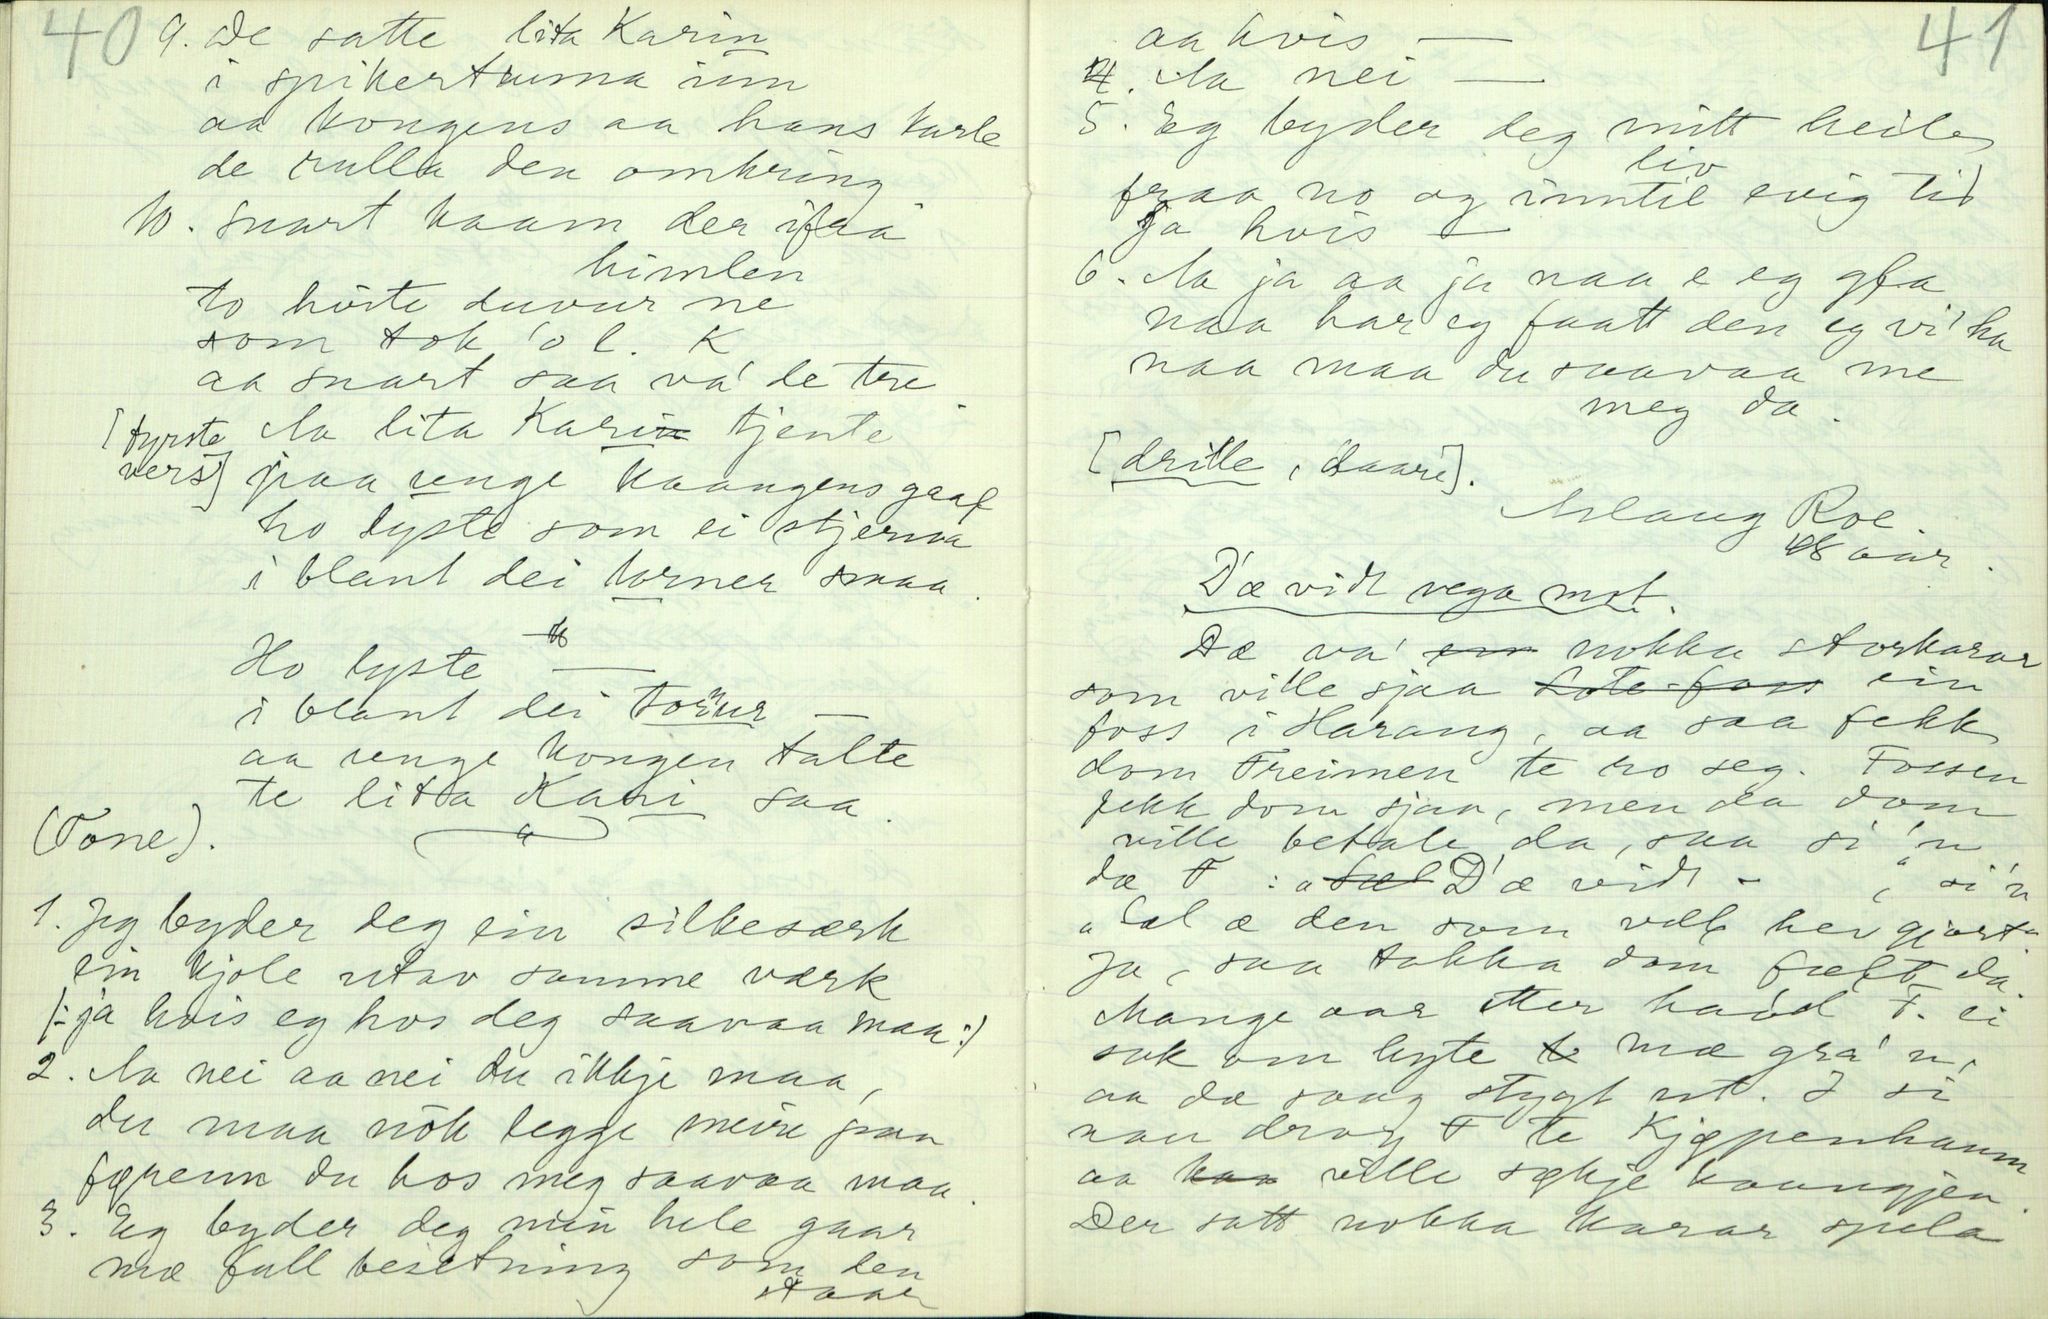 40
9. De satte lita Karin
i spikertunna inn
aa kongens aa hans karle
de rulla den omkring
10. Snart kaam der ifrå
himlen
to hvite duvur ne
som tok 'o l. K
aa snart saa va' de tre
[fyrste
vers]
Aa lita Karin tjente
paa unge kaangens gaal
ho lyste som ei stjerna
i blant dei terner smaa.
Ho lyste —
i blant dei tornur —
aa unge kongen talte
te litta Kari saa.
(Tone).
1. Jeg byder deg ein silkesærk
ein kjole utav samme værk
/:ja hvis eg hos deg saavaa maa:/
2. Aa nei aa nei du ikkje maa,
du maa nok legge meire paa
førenn du hos meg saavaa maa.
3. Eg byder deg min hele gaar
mæ full besetning som den
staar
41
aa hvis —
4. Aa nei —
5. Eg byder deg mitt heile
liv
fraa no og inntil evig tid
Ja hvis —
6. Aa ja aa ja naa e eg gla
naa har eg faatt den eg vi' ha
naa maa du saavaa me
meg da.
[drille, daare].
Aslaug Roe.
48 aar.
D'æ vidt vega mot.
Dæ va' em nokka storkarar
som ville sjaa Lote-foss ein
foss i Harang, aa saa fekk
dom Freimen te ro seg. Fossen
fekk dom sjaa, men da dom
ville betale da, saa si 'n
da F : "Sæl D'æ vidt – ", si 'n
"Sæl æ den som vælt hev gjort".
Ja, saa takka dom fælt da.
Mange aar etter havd F. ei
sak om byte te mæ gra'n,
aa da saag stygt ut. I si
nau drog F te Kjøpenhamn
aa kaa ville søkje kaangjen.
Der satt nokka karar spela